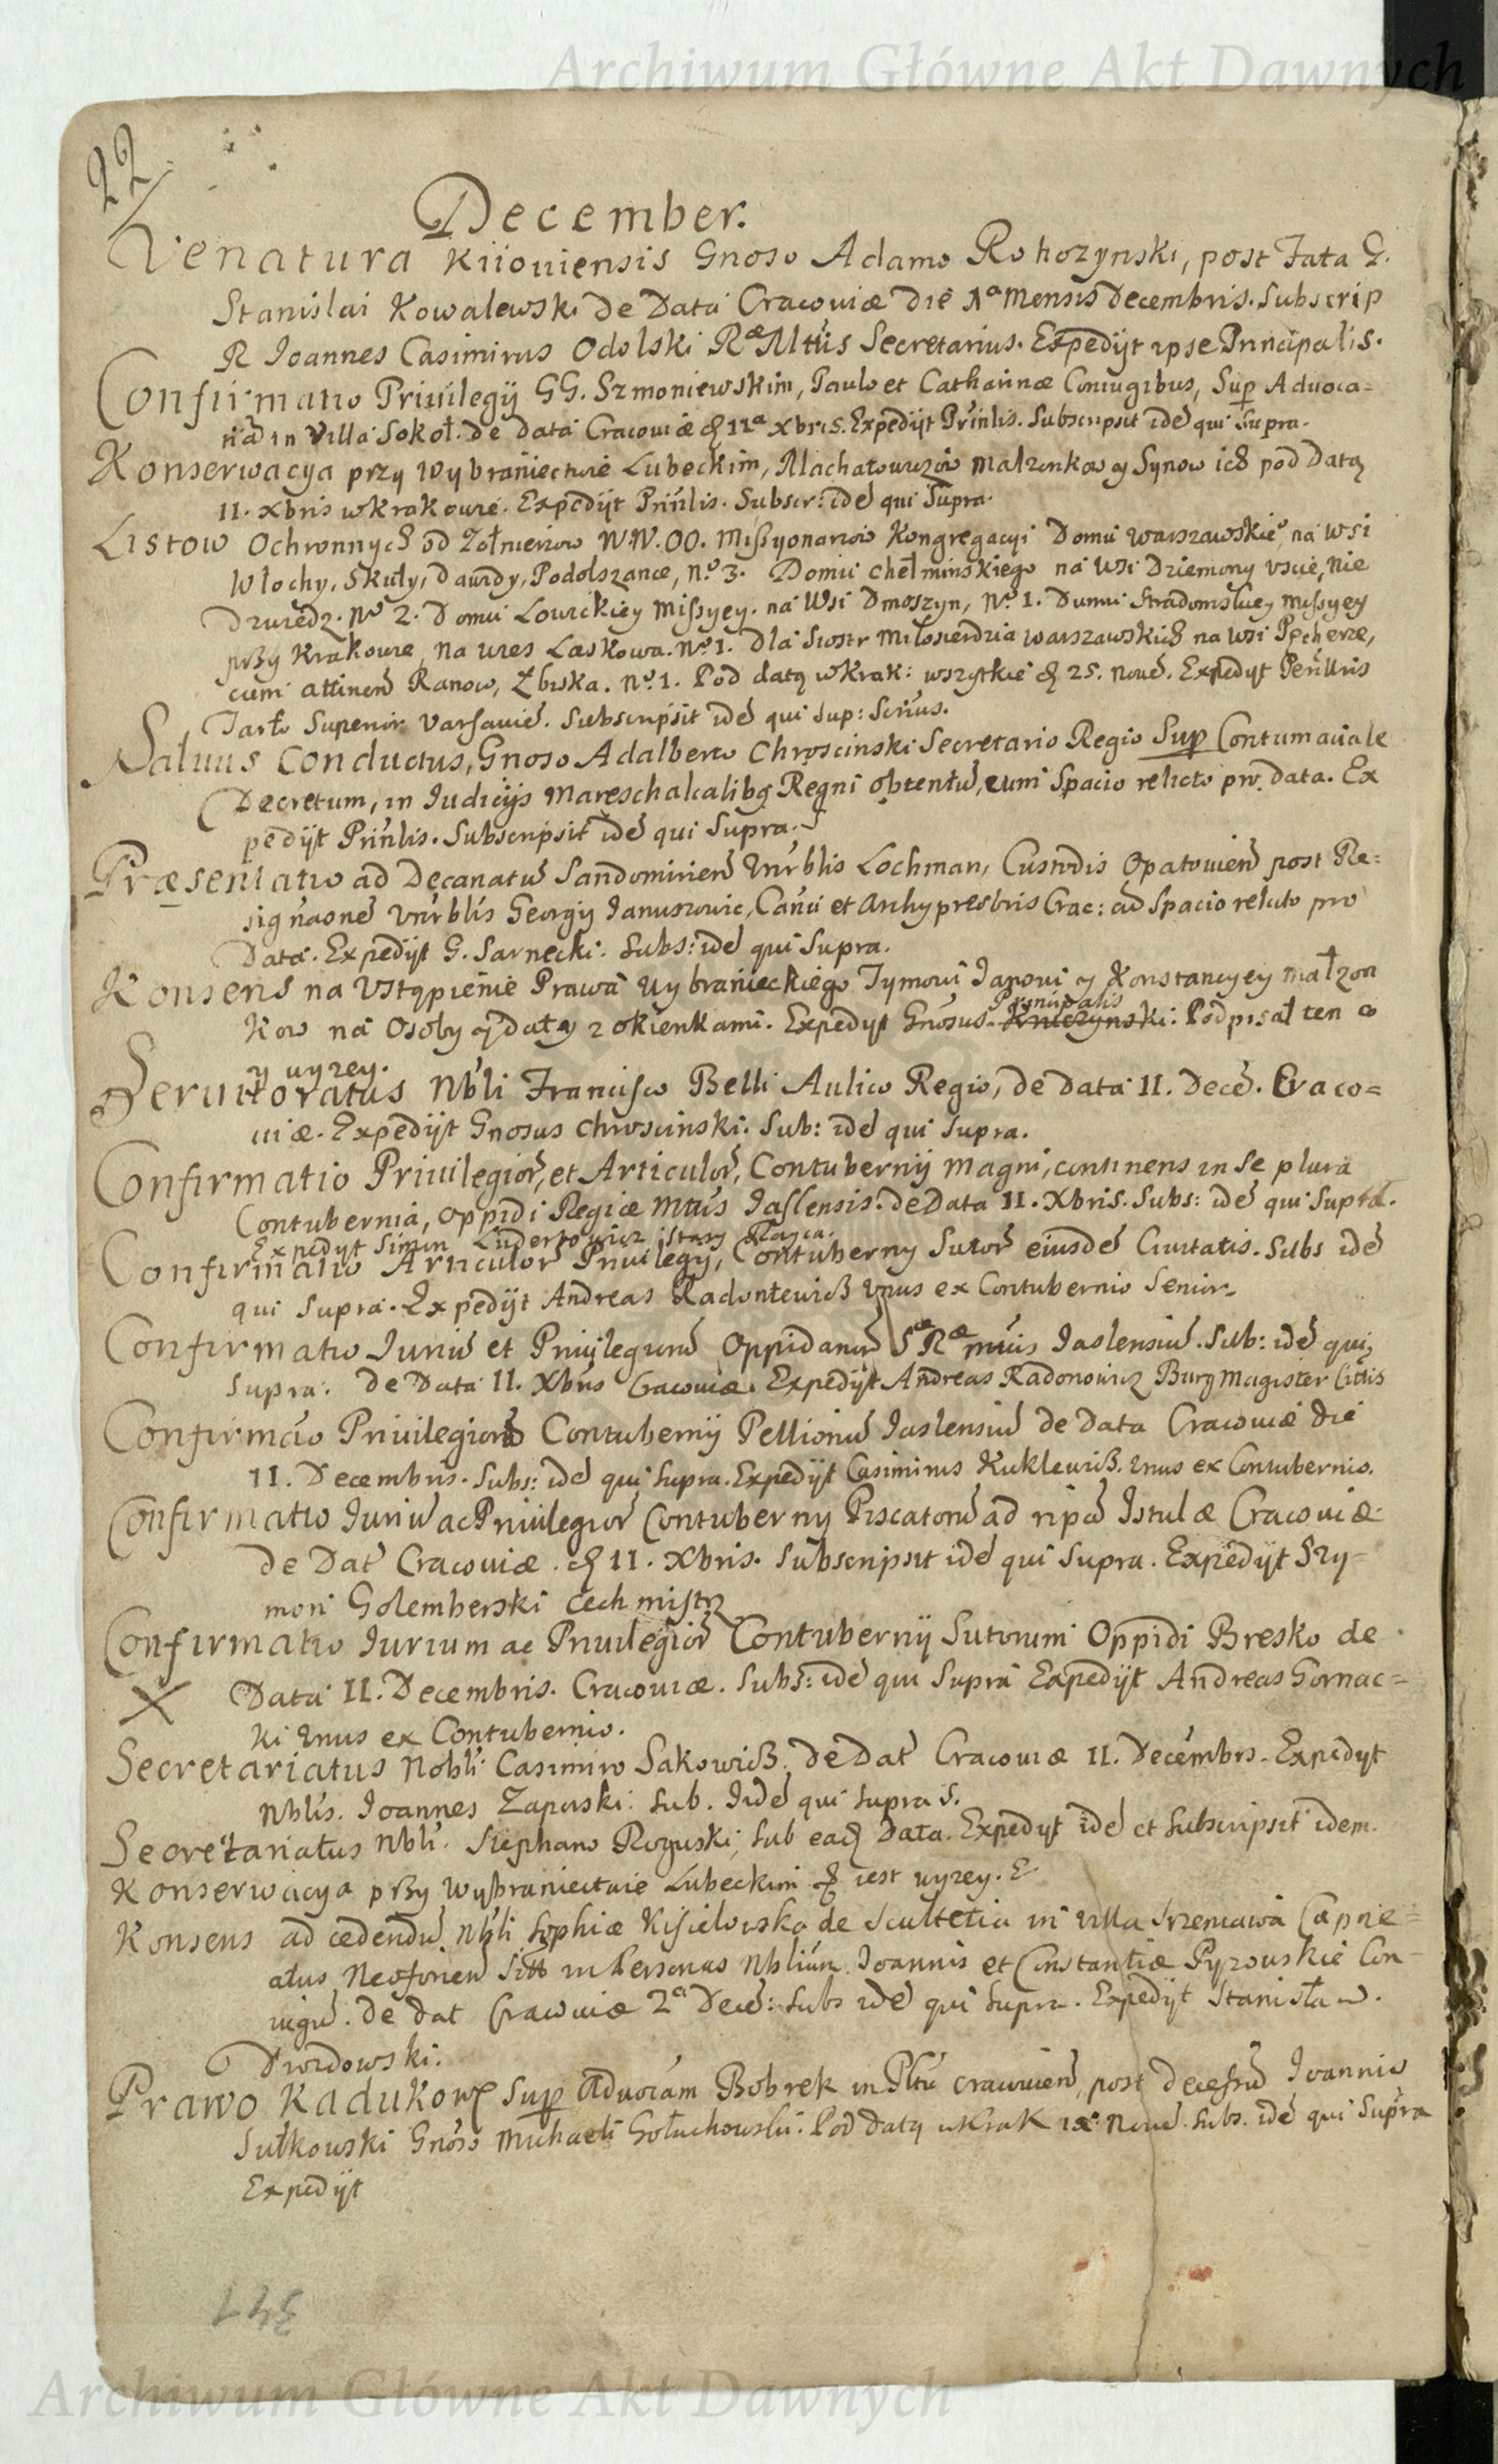 Archiwum Główne Akt Dawnych
22
December.
Venatura Kiioviensis Gnoso Adamo Rohozynski, post Fata G.
Stanislai Kowalewski de Data Cracoviæ die 1a Mensis Decembris. Subscrip
R Joannes Casimirus Odolski Ræ Mttis Secretarius. Expedijt ipse Principalis.
Confirmatio Privilegij GG. Szmoniewskim, Paulo et Catharinæ Coniugibus, Sup Advoca=
in Villa Sokoł. de data Cracoviæ d 11a Xbris. Expedijt Prinlis. Subscripsit ide qui Supra.
Konserwacya przy Wybraniectwie Lubeckim, Małzonkow y Synow ich pod Datą
11. Xbris w Krakowie. Expedijt Prinlis. Subscr: ide qui Supra.
Listow Ochronnych od Zołnierzow WW. OO. Missyonarzow Kongregacyi Domu Warszawskieo, na Wsi
Włochy, Skuły, Podolszance, No 3. Domu Chełminskiego na Wsi Dziemony Uscie, Nie
No 2. Domu Lowickiey Missyey. na Wsi Dmoszyn, No 1. Domu Stradomskiey Missyey
przy Krakowie, na wies Laskowa. No 1. Dla Siostr Miłosierdzia Warszawskich na Wsi Pęcherze,
cum attinen Ranow, Zbiska. No 1. Pod datą w Krak: wszytkie d 25. Nove. Expedijt
Tarło Superior Varsavie. Subscripsit ide qui sup:
Salvus Conductus, Gnoso Adalberto Chroscinski Secretario Regio Sup Contumaciale
Decretum, in Iudicijs Mareschalcalibg Regni obtentu, cum Spacio relicto pro Data. Ex
pedijt Prinlis. Subscripsit ide qui Supra.
Præsentatio ad Decanatu Sandomirien Lochman, Custodis Opatovien post Re=
Georgij Januszowic, et Archypresbris Crac: spacio relicto pro
Data. Expedijt G. Sarnecki. Subs: ide qui Supra.
Konsens na Ustąpienie Prawa Wybranieckiego Tymowi Janowi y Konstancyey Małzon
Principalis
kow na Osoby y datą z okienkami. Expedijt Gnosus. Podpisał ten co
y wyzey.
Servitoratus Nbli Francisco Belli Aulico Regio, de data 11. Dece. Craco=
viæ. Expedijt Gnosus Chroscinski. Sub: ide qui supra.
Confirmatio Privilegior, et Articulor, Contubernij Magni, continens in Se plura
Contubernia, Oppidi Regiæ Mttis Jaslensis. de Data 11. Xbris. Subs: ide qui Supra.
Expedijt Simon stary Rayca.
Confirmatio Articulor Privilegij, Contuberny Sutor eiusde Civitatis. Subs ide
qui Supra. Expedijt Andreas unus ex Contubernio Senior.
Confirmatio Iuriu et Privilegioru Oppidanor Jaslensiu. Sub: ide qui
supra. de Data 11. Xbris Cracoviæ. Expedijt Andreas Radonowicz Burgmagister Cittis
Confirmao Privilegior Contubernij Pellionu Jaslensiu de Data Cracoviæ die
11. Decembris. Subs: ide qui Supra. Expedijt Casimirus Kuklewicß. Unus ex Contubernio.
Confirmatio Iuriu ac Privilegior Contuberny Piscatoru ad ripa Istulæ Cracoviæ
de Dat Cracoviæ. d 11. Xbris. Subscripsit ide qui Supra. Expedijt Szy=
mon Golemberski Cechmistrz
Confirmatio Iurium ac Privilegior Contubernij Sutorum Oppidi Bresko de
X Data 11. Decembris. Cracoviæ. Subs: ide qui Supra Expedijt Andreas Gornac=
ki Unus ex Contubernio.
Secretariatus Nobli Casimiro Sakowicß. de Dat Cracoviæ 11. Decembrs. Expedijt
Nblis. Joannes Zaporski: Sub. Ide qui Supra.
Secretariatus Nbli. Stephano Roguski, sub ead Data. Expedijt ide et Subscripsit idem.
Konserwacya przy Wybraniectwie Lubeckim jest wyzey.
Konsens ad cedendu Nbli Sophiæ Kisielowska de Scultetia in Villa Srzeniawa
in Personas Nblium Joannis et Constantiæ Pyzowskie Con=
iugu. de dat Cracoviæ 2a Dece: Subs ide qui Supra. Expedijt Stanisław.
Drozdowski.
Prawo Kadukowe Sup Bobrek in Pltu Cracovien, post Decessu Joannis
Sułkowski Gnoso Michaeli Gołuchowski. Pod datą w Krak Nove. Subs. ide qui Supra
Expedijt
347
Archiwum Główne Akt Dawnych